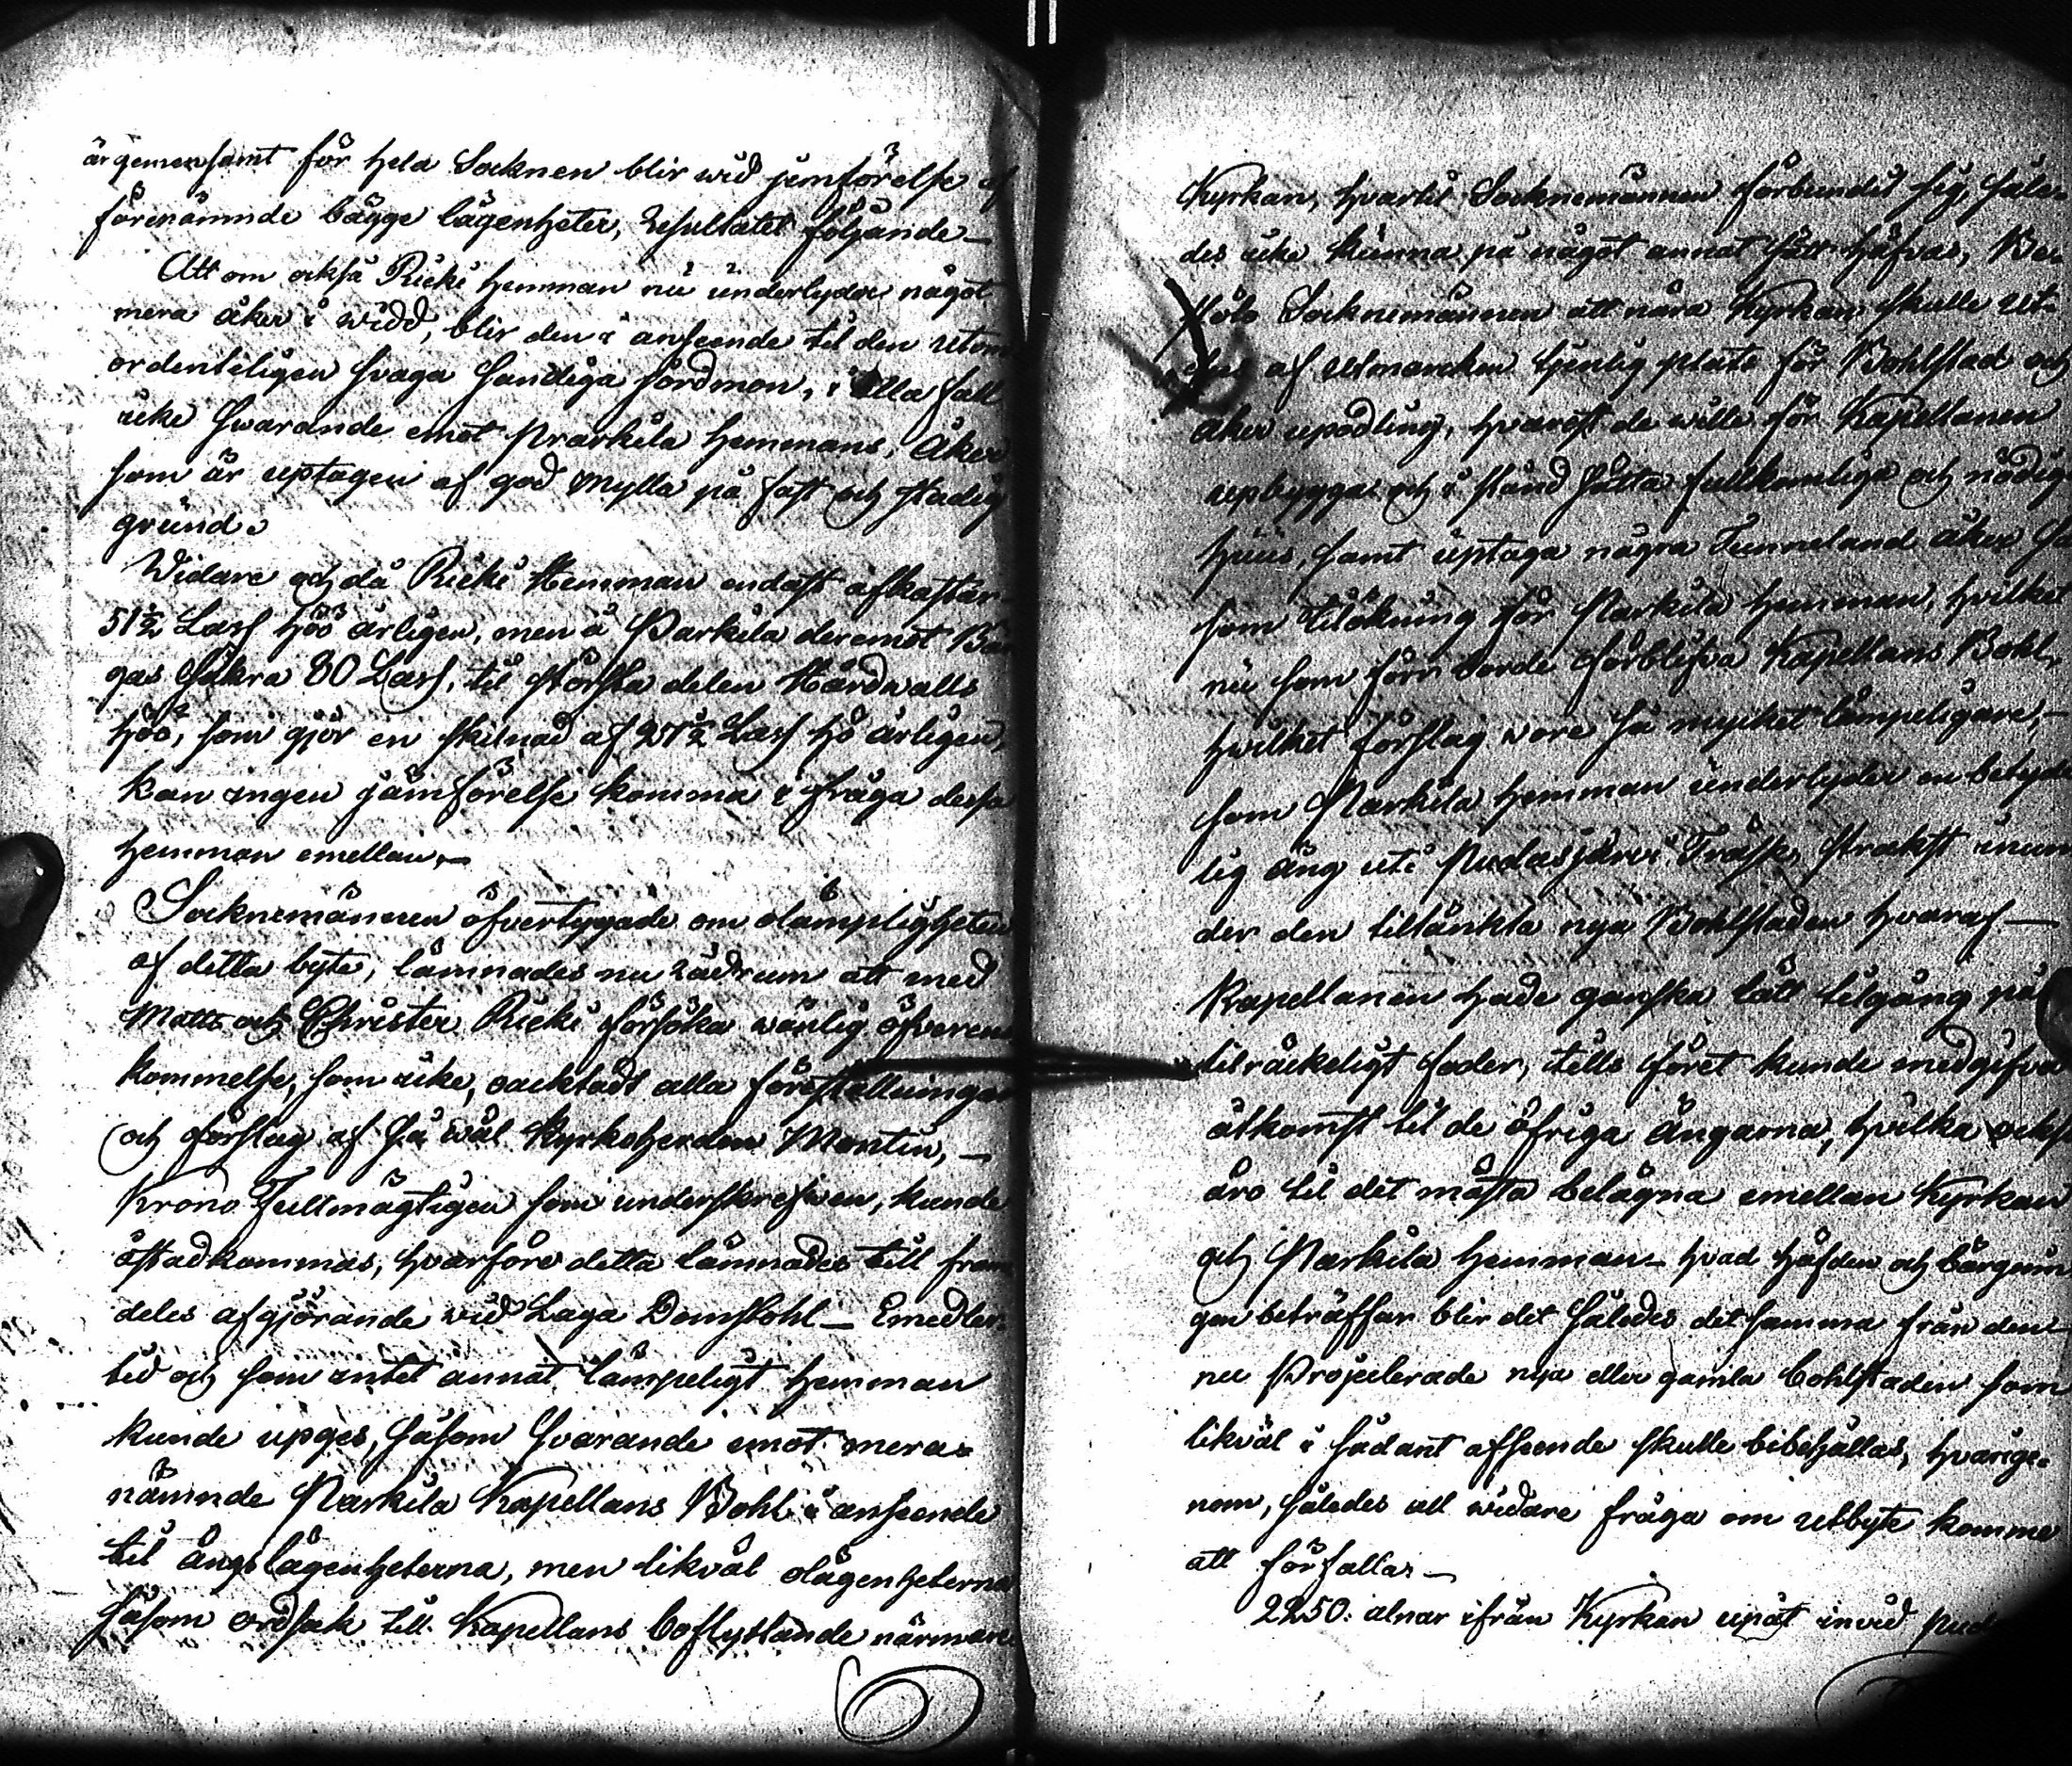 är gemensamt för hela Socknen blir wid jemförelse af
förenämnde bägge lägenheter, Resultatet följande –
Att om också Rieki hemman nu underlyder något
mera åker i widd, blir den i anseende til den utom
ordenteligen svaga sandiga jordmon, i alla fall
icke swarande emot Parkila hemmans, Åker
som är uptagen af god Mylla på fast och stadig
grund.
Widare och då Rieki Hemman endast afkastar
51½ Lass Höö årligen, men å Parkila deremot Bär
gas säkra 80 Lass, til största delen Hårdwalls
höö, som gjör en skilnad af 28½ Lass hö årligen,
kan ingen jämförelse komma i fråga dessa
hemman emellan, –
Socknemännen öfvertygade om olämpligheten
af detta byte, lämnades nu rådrum att med
Matts och Christer Rieki försöka wänlig öfverens
kommelse, som icke, oacktadt alla föreställningar
och förslag af så wäl Kyrkoherden Montin, –
Krono Fullmägtigen som underskrefwen, kunde
åstadkommas, hvarföre detta lämnades till fram
deles afgjörande wid Laga Domstohl – Emedler-
tid och som intet annat lämpeligt hemman
kunde upges, såsom svarande emot mera-
nämnde Parkila Kapellans Bohl i anseende
til Ängslägenheterna, men likväl olägenheterna
såsom ordsak till Kapellans boflyttande närmare
Kyrkan, hvartil Socknemännen förbundit sig, såle-
des icke kunna på något annat sätt häfvas,
Socknemännen att nära Kyrkan skulle ut-
af utmarcken tjenlig plats för Bohlstad och
åker upodling, hvarest de wille för Kapellanen
upbygga och i stånd sätta fullkomliga och nödiga
huus, samt uptaga några Tunneland åker
som tilökning för Parkila hemman, hvilket
nu som förr borde förblifva Kapellans Bohl,
hwilket förslag wore så mycket lämpeligare, –
som Parkila hemman underlyder en betyde
lig äng uti Pudasjärvi Träsk, strakst inun
der den tiltänkta nya Bohlstaden hvaraf –
Kapellanen hade ganska lätt tilgång på
tilräckeligt foder, tills föret kunde medgifva
åtkomst til de öfriga ängarna, hvilka ocks
äro til det mästa belägna emellan Kyrkan
och Parkila hemman – hvad häfden och bärgnin
gen beträffar blir det således det samma från den
nu Projecterade nya eller gamla bohlstaden som
likväl i sådant afseende skulle bibehållas, hvarige-
nom, således all widare fråga om utbyte komme
att förfalla. –
2250. alnar ifrån Kyrkan upåt invid